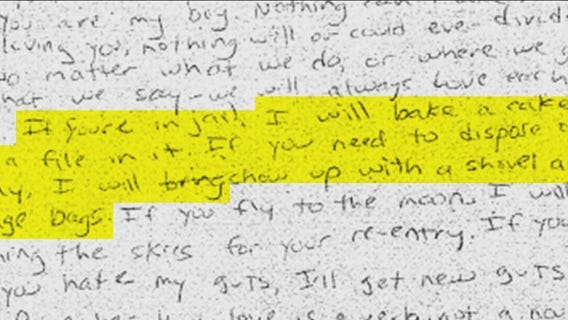 you are my boy. Nothing can
loving you, nothing will or could ever divid
no matter what we do, or where we g
hat we say - we will always love each
If you're in jail, I will bake a cake
a file in it. If you need to dispose o
y, I will bring show up with a shovel a
ge bags. If you fly to the moon, I will
ning the skies for your re-entry. If you
you hate my guts, I'll get new guts
love is a verb, not a no